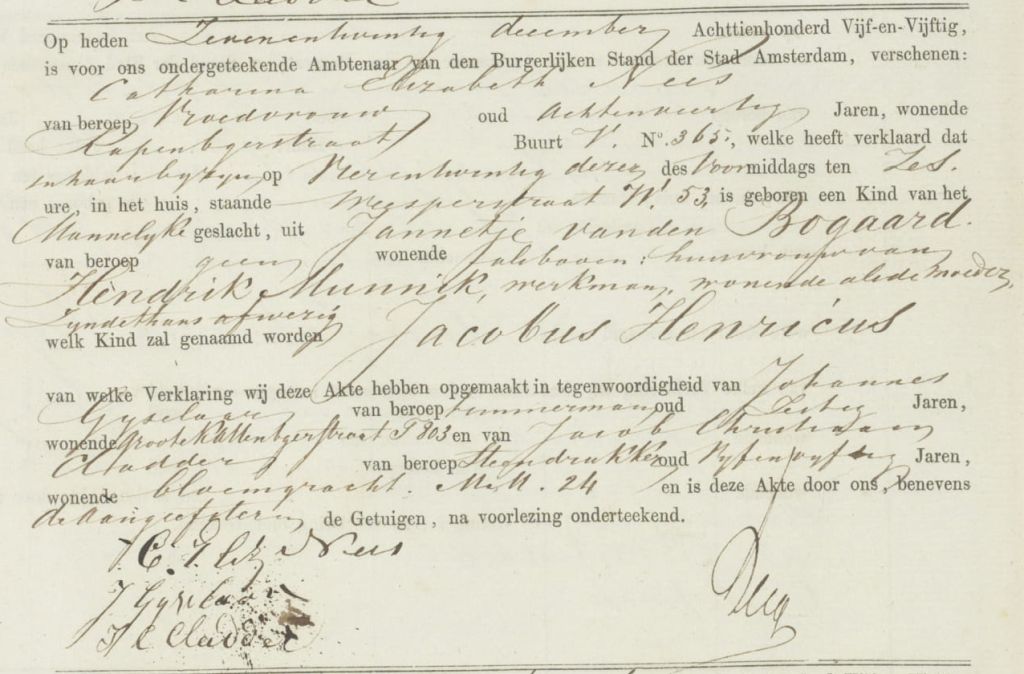 Op heden Zevenentwintig december Achttienhonderd Vijf-en-Vijftig,
is voor ons ondergeteekende Ambtenaar van den Burgerlijken Stand der Stad Amsterdam, verschenen:
Catharina Elizabeth Nees
van beroep Vroedvrouw oud Achtenveertig Jaren, wonende
Rapenbgerstraat Buurt V. No. 365, welke heeft verklaard dat
in haar byzyn op Vierentwintig dezer des Voormiddags ten Zes
ure, in het huis, staande Weesperstraat W. 53, is geboren een Kind van het
Mannelyke geslacht, uit Jannetje van den Bogaard.
van beroep geen wonende als boven: huisvrouw van
Hendrik Munnik, werkman, wonende als de moeder,
zynde thans afwezig
welk Kind zal genaamd worden Jacobus Henricus
van welke Verklaring wij deze Akte hebben opgemaakt in tegenwoordigheid van Johannes
Gyselaar van beroep timmerman oud Zestig Jaren,
wonende Groote Kattenbgerstraat P 803 en van Jacob Christiaan
Cladder van beroep Steendrukker oud Vyfenvyftig Jaren,
wonende bloemgracht. M.M. 24 en is deze Akte door ons, benevens
de Aangeefsteren de Getuigen, na voorlezing onderteekend.
C. Nees
J Gyselaar
J C Cladder